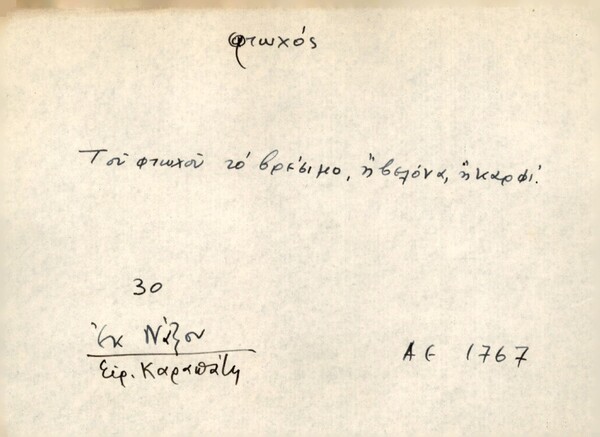 φτωχός
Τοῦ φτωχοῦ τό βρέσιμο, ἤ βελόνα, ἤ καρφί.
30
Ἐκ Νάξου
Εἰρ. Καραπάτη
ΑΕ 1767